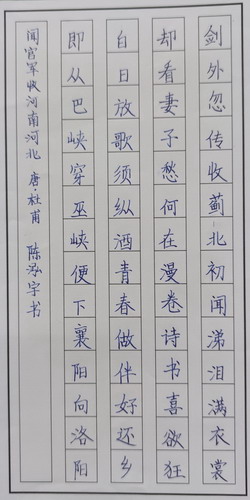 剑外忽传收蓟北初闻涕泪满衣裳
却看妻子愁何在漫卷诗书喜欲狂
白日放歌须纵酒青春做伴好还乡
即从巴峡穿巫峡便下襄阳向洛阳
闻官军收河南河北 唐·杜甫 陈泓宇书